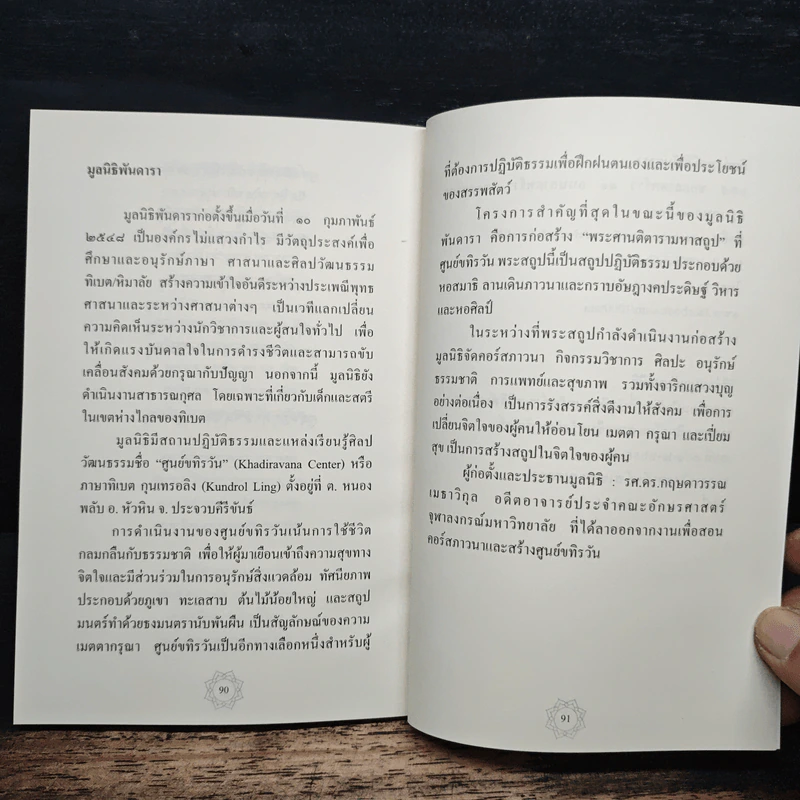 มูลนิธิพันดารา
มูลนิธิพันดาราก่อตั้งขึ้นเมื่อวันที่ ๑๐ กุมภาพันธ์
๒๕๔๘ เป็นองค์กรไม่แสวงกำไร มีวัตถุประสงค์เพื่อ
ศึกษาและอนุรักษ์ภาษา ศาสนาและศิลปวัฒนธรรม
ทิเบต/หิมาลัย สร้างความเข้าใจอันดีระหว่างประเพณีพุทธ
ศาสนาและระหว่างศาสนาต่างๆ เป็นเวทีแลกเปลี่ยน
ความคิดเห็นระหว่างนักวิชาการและผู้สนใจทั่วไป เพื่อ
ให้เกิดแรงบันดาลใจในการดำรงชีวิตและสามารถขับ
เคลื่อนสังคมด้วยกรุณากับปัญญา นอกจากนี้ มูลนิธิยัง
ดำเนินงานสาธารณกุศล โดยเฉพาะที่เกี่ยวกับเด็กและสตรี
ในเขตห่างไกลของทิเบต
มูลนิธิมีสถานปฏิบัติธรรมและแหล่งเรียนรู้ศิลป
วัฒนธรรมชื่อ “ศูนย์ขทิรวัน” (Khadiravana Center) หรือ
ภาษาทิเบต กุนเทรอลิง (Kundrol Ling) ตั้งอยู่ที่ ต. หนอง
พลับ อ. หัวหิน จ. ประจวบคีรีขันธ์
การดำเนินงานของศูนย์ขทิรวันเน้นการใช้ชีวิต
กลมกลืนกับธรรมชาติ เพื่อให้ผู้มาเยือนเข้าถึงความสุขทาง
จิตใจและมีส่วนร่วมในการอนุรักษ์สิ่งแวดล้อม ทัศนียภาพ
ประกอบด้วยภูเขา ทะเลสาบ ต้นไม้น้อยใหญ่ และสถูป
มนตร์ทำด้วยธงมนตรานับพันผืน เป็นสัญลักษณ์ของความ
เมตตากรุณา ศูนย์ขทิรวันเป็นอีกทางเลือกหนึ่งสำหรับผู้
90
ที่ต้องการปฏิบัติธรรมเพื่อฝึกฝนตนเองและเพื่อประโยชน์
ของสรรพสัตว์
โครงการสำคัญที่สุดในขณะนี้ของมูลนิธิ
พันดารา คือการก่อสร้าง “พระศานติตารามหาสถูป” ที่
ศูนย์ขทิรวัน พระสถูปนี้เป็นสถูปปฏิบัติธรรม ประกอบด้วย
หอสมาธิ ลานเดินภาวนาและกราบอัษฎางคประดิษฐ์ วิหาร
และหอศิลป์
ในระหว่างที่พระสถูปกำลังดำเนินงานก่อสร้าง
มูลนิธิจัดคอร์สภาวนา กิจกรรมวิชาการ ศิลปะ อนุรักษ์
ธรรมชาติ การแพทย์และสุขภาพ รวมทั้งจาริกแสวงบุญ
อย่างต่อเนื่อง เป็นการรังสรรค์สิ่งดีงามให้สังคม เพื่อการ
เปลี่ยนจิตใจของผู้คนให้อ่อนโยน เมตตา กรุณา และเปี่ยม
สุข เป็นการสร้างสถูปในจิตใจของผู้คน
ผู้ก่อตั้งและประธานมูลนิธิ : รศ.ดร.กฤษดาวรรณ
เมธาวิกุล อดีตอาจารย์ประจำคณะอักษรศาสตร์
จุฬาลงกรณ์มหาวิทยาลัย ที่ได้ลาออกจากงานเพื่อสอน
คอร์สภาวนาและสร้างศูนย์ขทิรวัน
91